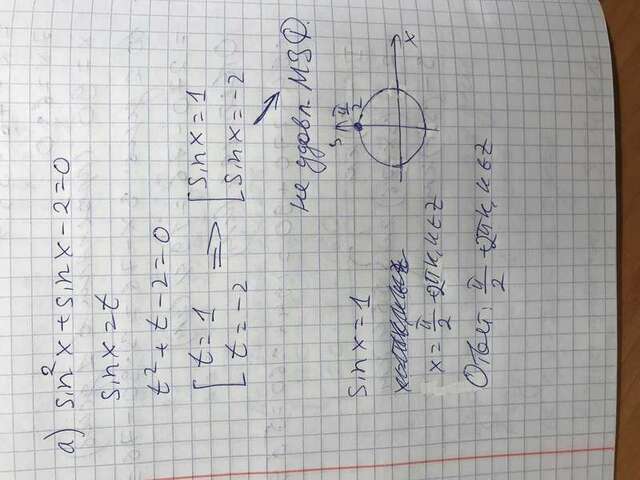 а) sin²x + sinx - 2 = 0
sinx = t
t² + t - 2 = 0
[ t = 1 => [ sinx = 1
[ t = -2 [ sinx = -2
не удовл. МЗФ.
sinx = 1
y π/2
x
x = π/2 + 2πk, k ∈ Z
Ответ: π/2 + 2πk, k ∈ Z